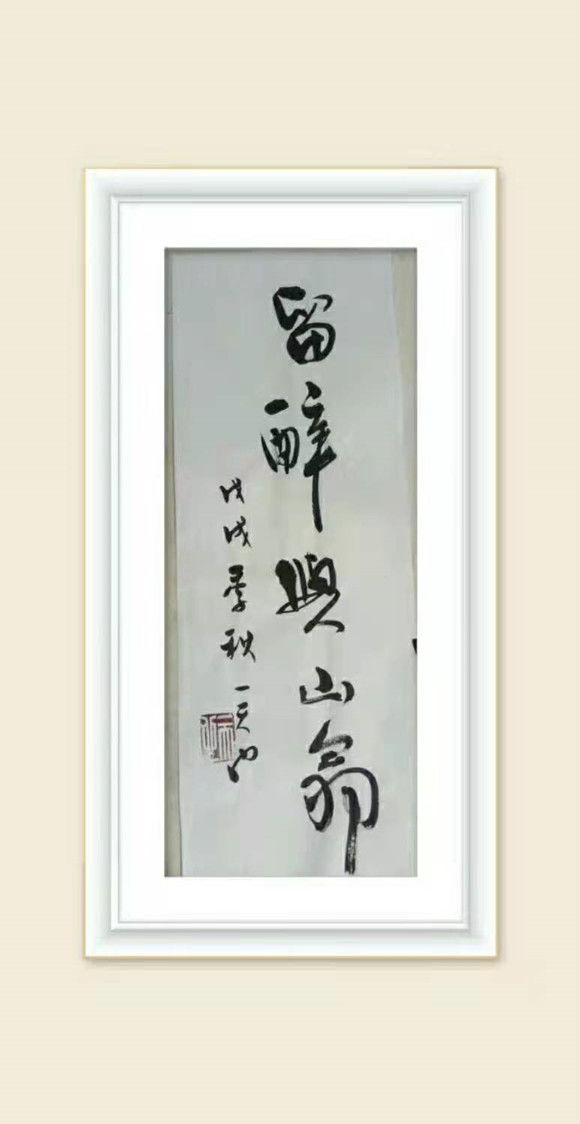 留醉與山翁
戊戌季秋一